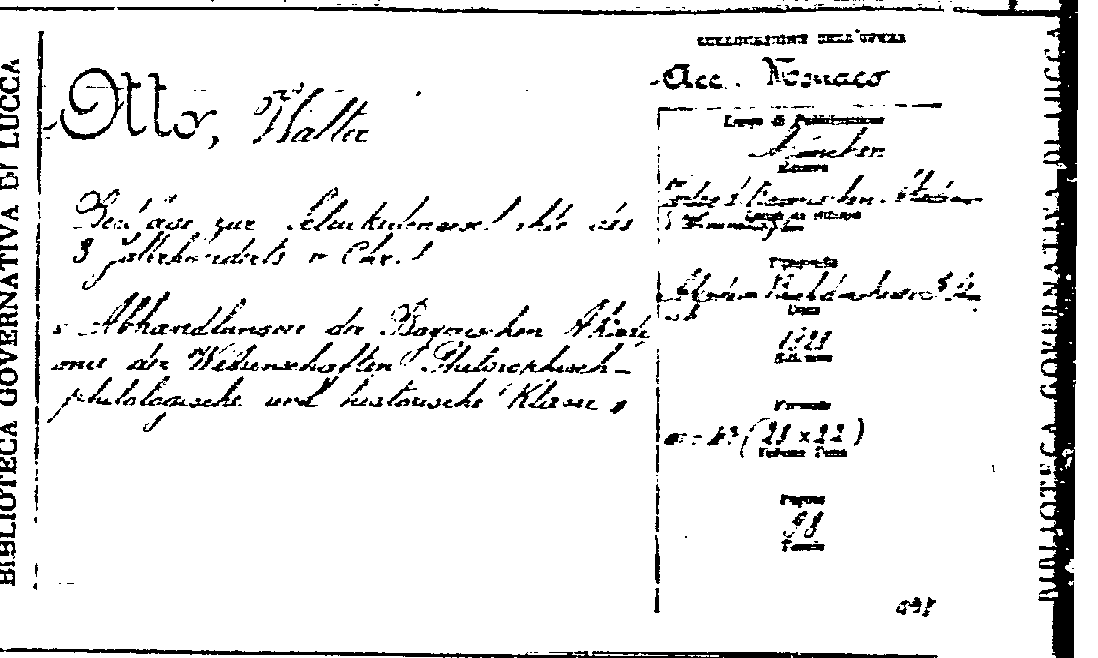 BIBLIOTECA GOVERNATIVA DI LUCCA
Otto, Walter
Beiträge zur Seleukidengeschichte des
3 Jahrhunderts v Chr.
« Abhandlungen der Bayerischen Akade
mie der Wissenschaften Philosophisch-
philologische und historische Klasse »
COLLOCAZIONE DELL'OPERA
Acc. Monaco
Luogo di Pubblicazione
München
Editore
Luogo di stampa
Tipografia
Data
1928
Edizione
Formato
(21 x 22)
Volume Tomo
Pagine
98
Tavole
BIBLIOTECA GOVERNATIVA DI LUCCA